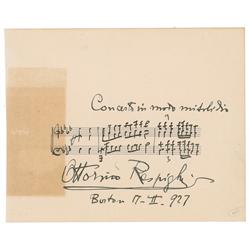 Concerto in modo misolidio
Ottorino Respighi
Boston 17-II-927